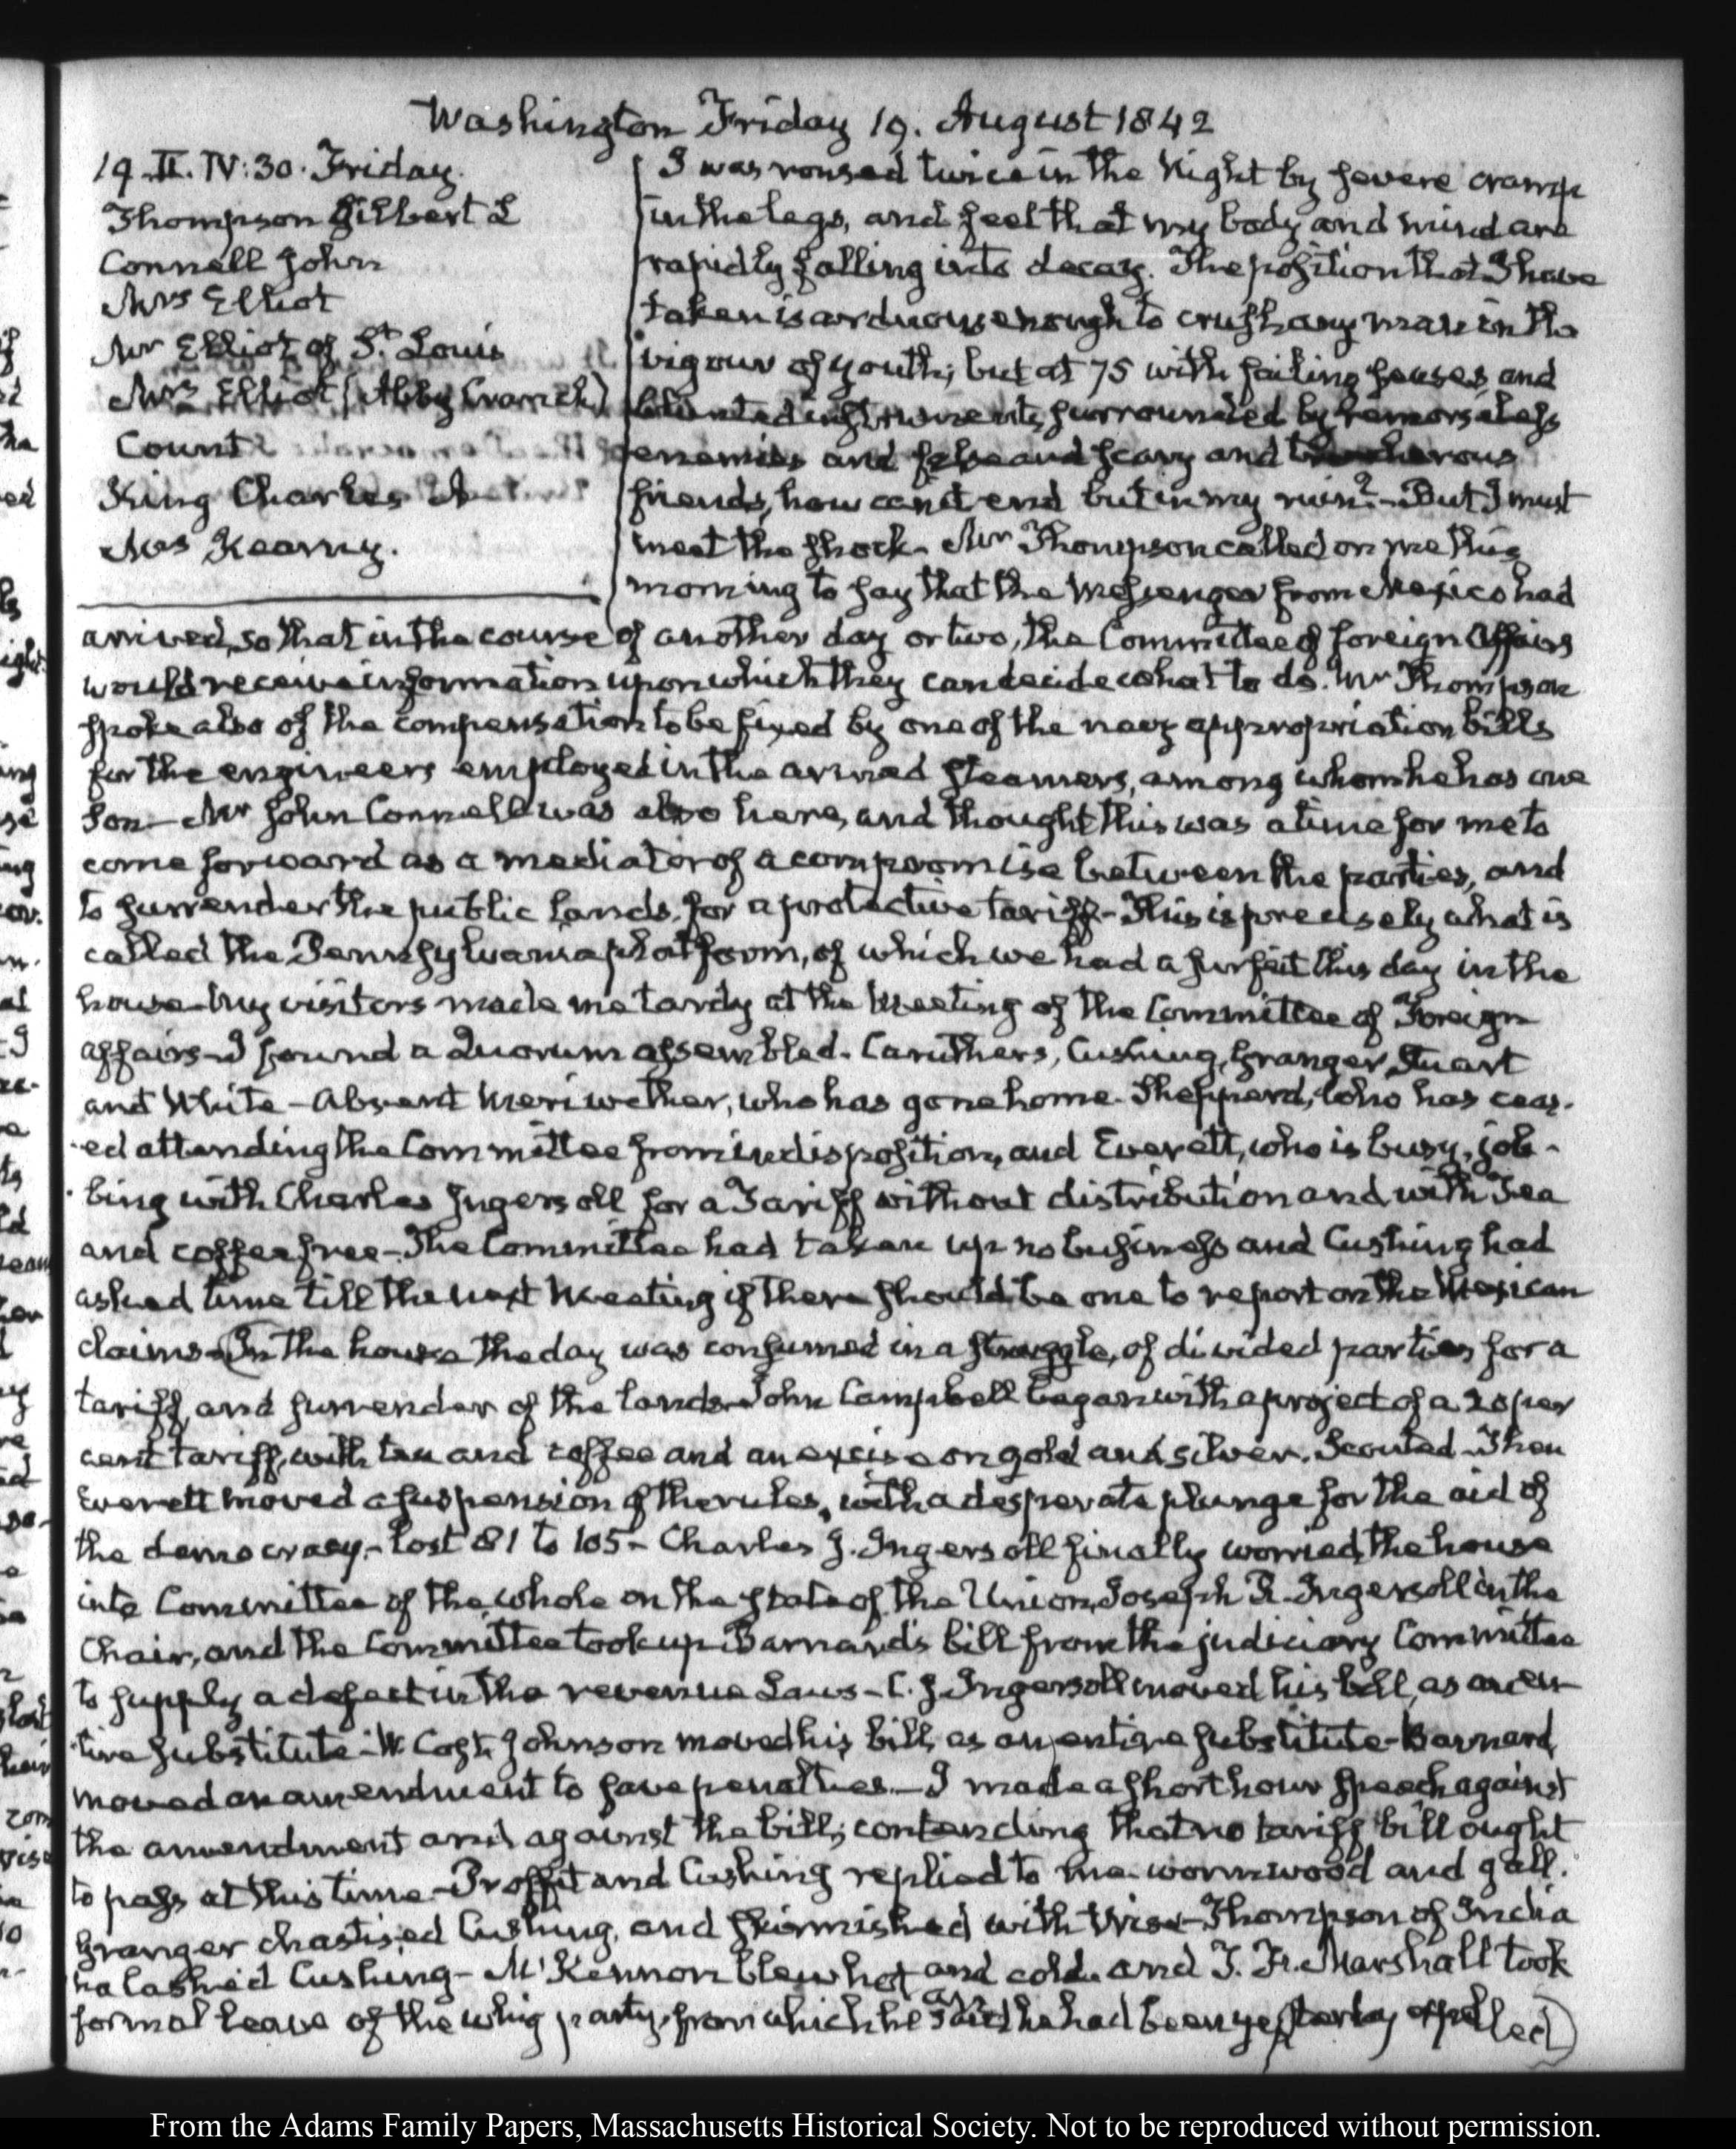 Washington Friday 19. August 1842
19. II. IV:30. Friday.
Thompson Gilbert L
Connell John
Mrs Elliot
Mr Elliot of St. Louis
Mrs Elliot (Abby Cranch)
Count
King Charles A
Mrs Kearny.
I was roused twice in the Night by severe cramp
in the legs, and feel that my body and mind are
rapidly falling into decay. The position that I have
taken is arduous enough to crush any man in the
vigour of youth; but at 75 with failing senses and
blunted instruments, surrounded by remorseless
enemies and false and scary and treacherous
friends, how can it end but in my ruin? - But I must
meet the shock - Mr Thompson called on me this
morning to say that the Messenger from Mexico had
arrived, so that in the course of another day or two, the Committee of foreign Affairs
would receive information upon which they can decide what to do. Mr Thompson
spoke also of the compensation to be fixed by one of the navy appropriation bills
for the engineers employed in the armed steamers, among whom he has one
son - Mr John Connell was also here, and thought this was a time for me to
come forward as a mediator of a compromise between the parties, and
to surrender the public lands, for a protective tariff - This is precisely what is
called the Pennsylvania platform, of which we had a surfeit this day in the
house - My visitors made me tardy at the Meeting of the Committee of Foreign
affairs - I found a Quorum assembled. Caruthers, Cushing, Granger, Stuart
and White - Absent Meriwether, who has gone home. Shepperd, who has ceas-
-ed attending the Committee from indisposition, and Everett, who is busy, job-
-bing with Charles Ingersoll for a Tariff without distribution and with Tea
and coffee free - The Committee had taken up no business and Cushing had
asked time till the next Meeting if there should be one to report on the Mexican
claims - (In the house the day was consumed in a struggle, of divided parties for a
tariff, and surrender of the lands - John Campbell began with a project of a 20 per
cent tariff, with tea and coffee and an excise on gold and silver. Scouted - Then
Everett moved a suspension of the rules, with a desperate plunge for the aid of
the democracy - lost 81 to 105 - Charles J. Ingersoll finally worried the house
into Committee of the whole on the state of the Union, Joseph R. Ingersoll in the
Chair, and the Committee took up Barnard's bill from the judiciary Committee
to supply a defect in the revenue Laws - C. J. Ingersoll moved his bill, as an en-
-tire substitute - W. Cost Johnson moved his bill, as an entire substitute - Barnard
moved an amendment to save penalties - I made a short hour speech against
the amendment and against the bill; contending that no tariff bill ought
to pass at this time - Proffit and Cushing replied to me wormwood and gall.
Granger chastised Cushing, and skirmished with Wise - Thompson of India
na lashed Cushing - McKennon blew hot and cold and T. F. Marshall took
formal leave of the whig party, from which he said he had been yesterday expelled)
From the Adams Family Papers, Massachusetts Historical Society. Not to be reproduced without permission.